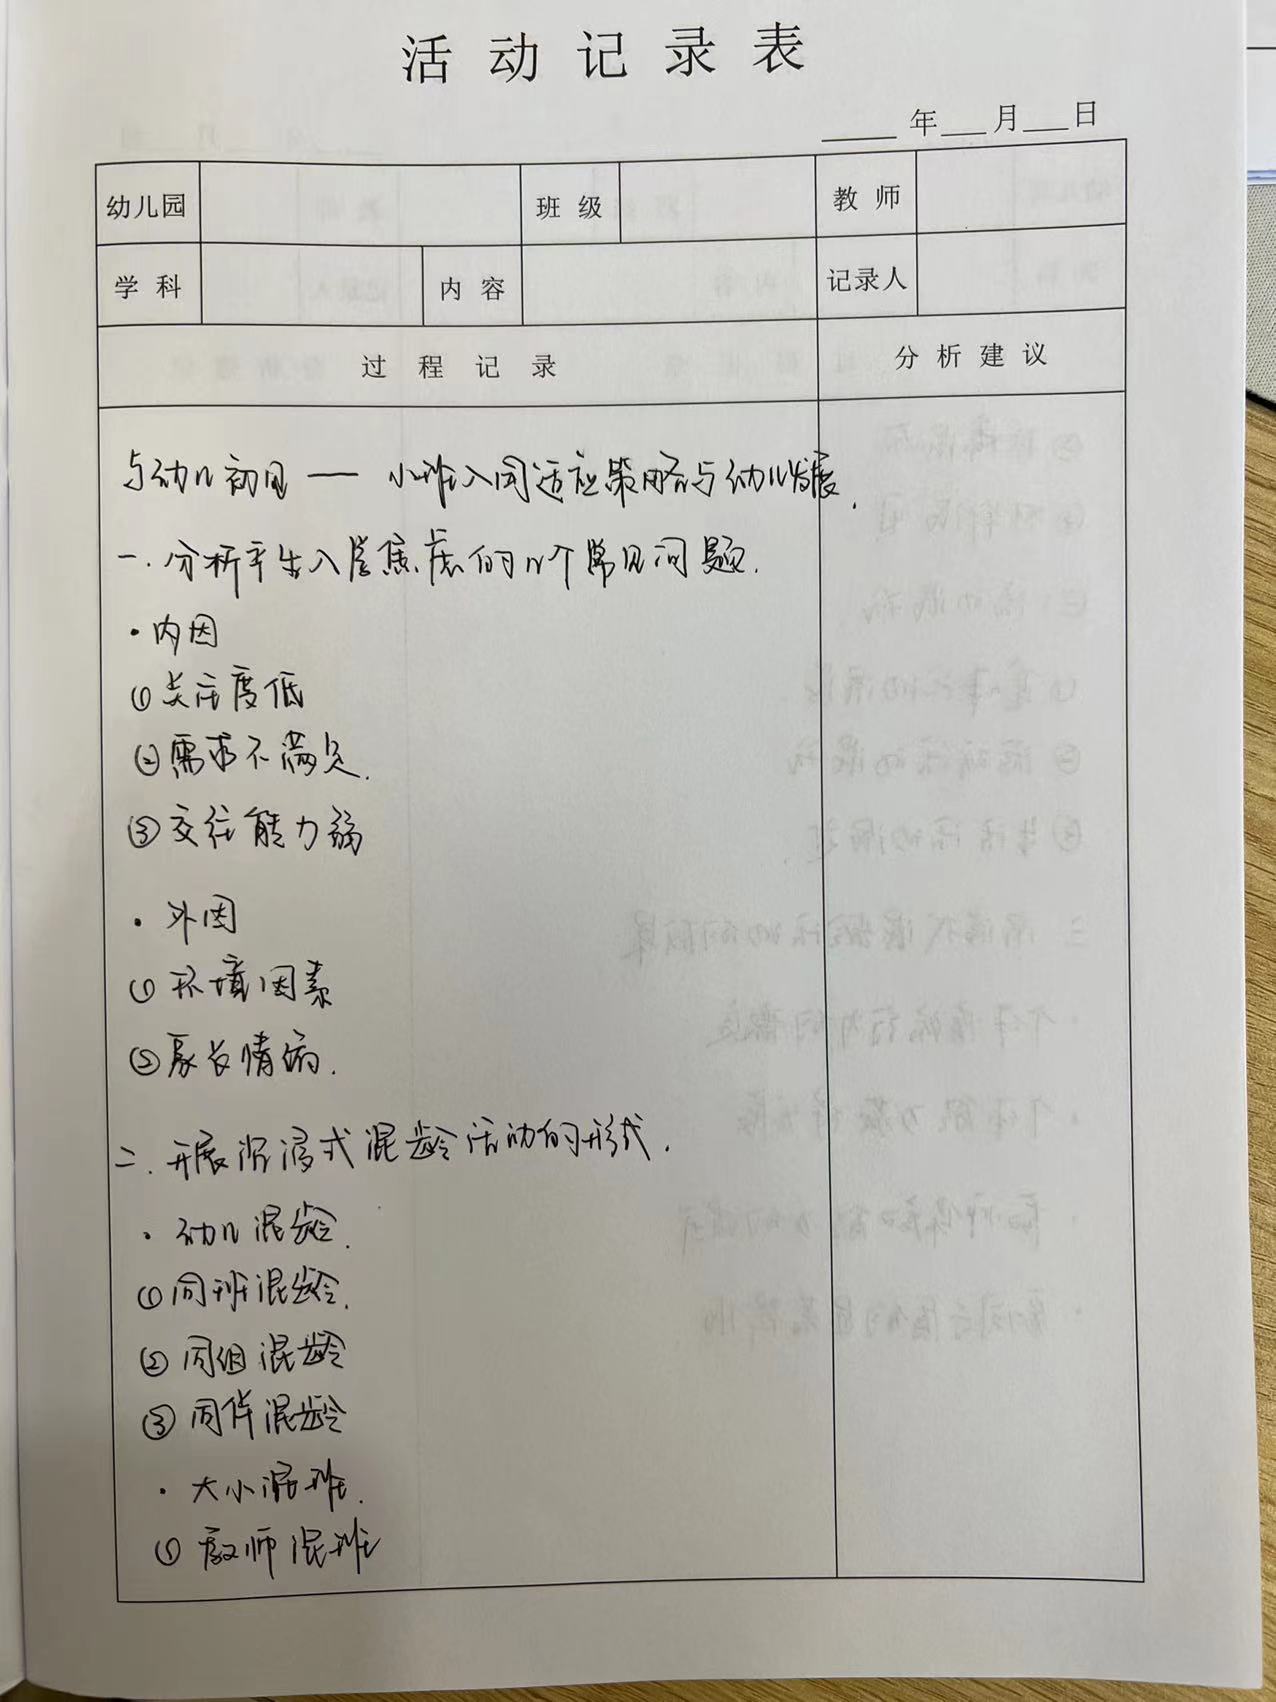 活动记录表
年 月 日
幼儿园 班级 教师
学科 内容 记录人
过程记录 分析建议
与幼儿初见 — 小班入园适应策略与幼儿发展.
一.分析新生入学焦虑的几个常见问题.
·内因
①关注度低
②需求不满足.
③交往能力弱
·外因
①环境因素
②家长情绪.
二.开展沉浸式混龄活动的形式.
·幼儿混龄.
①同班混龄.
②同组混龄
③同伴混龄
·大小混班.
①教师混班